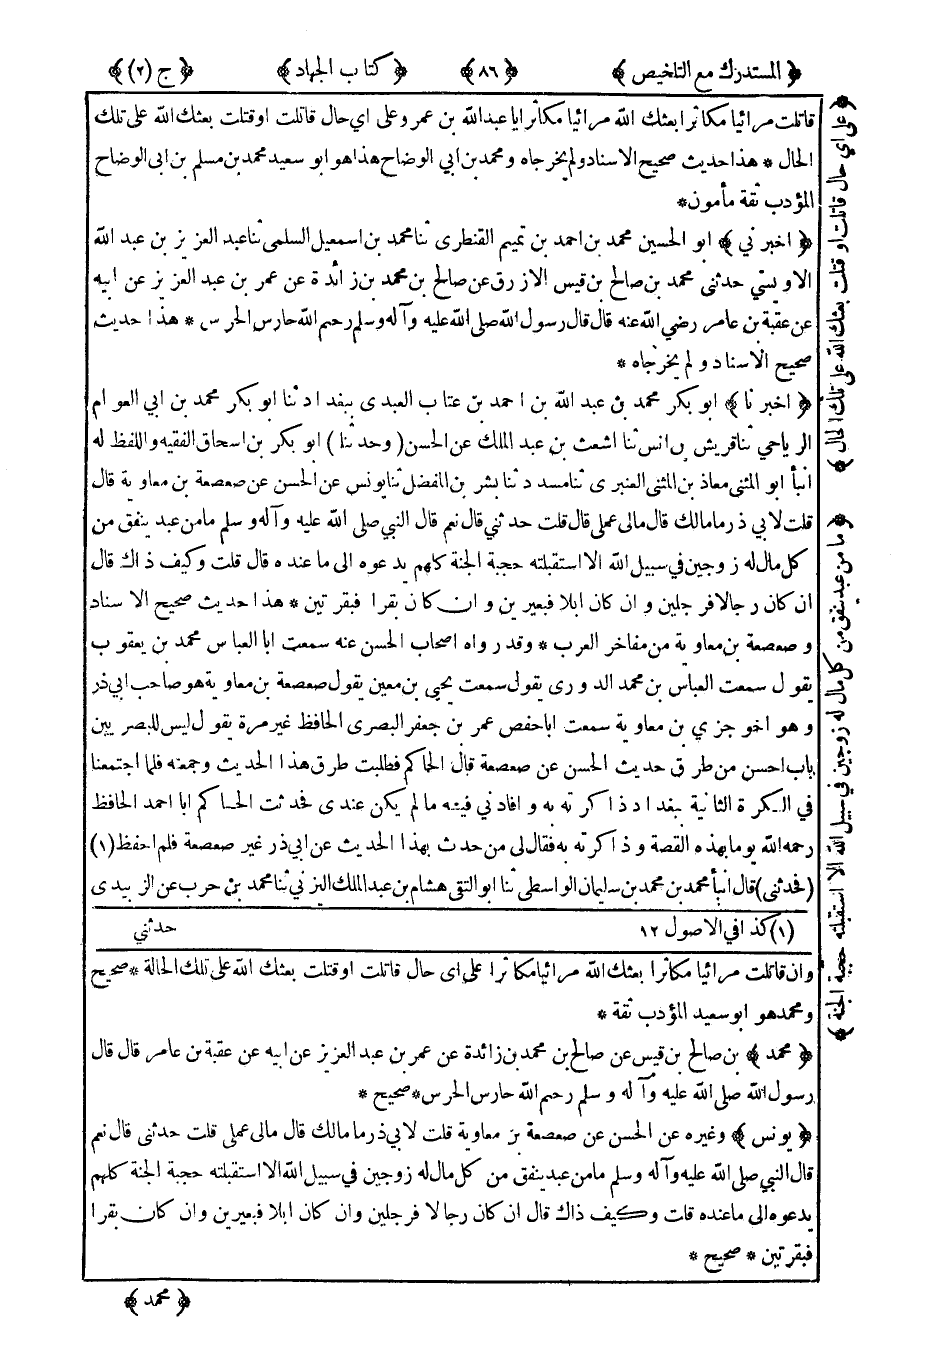 ﴿ المستدرك مع التلخيص ﴾ ﴿ ٨٦ ﴾ ﴿ كتاب الجهاد ﴾ ﴿ ج (٢) ﴾
قاتلت مرائيا مكاثرا بعثك الله مرائيا مكاثرا يا عبد الله بن عمرو على اي حال قاتلت او قتلت بعثك الله على تلك
الحال * هذا حديث صحيح الاسناد ولم يخرجاه ومحمد بن ابي الوضاح هذا هو ابو سعيد محمد بن مسلم بن ابى الوضاح
المؤدب ثقة مأمون*
﴿ اخبرني ﴾ ابو الحسين محمد بن احمد بن تميم القنطرى ثنا محمد بن اسمعيل السلمى ثنا عبد العزيز بن عبد الله
الاويسي حدثنى محمد بن صالح بن قيس الازرق عن صالح بن محمد بن زائدة عن عمر بن عبد العزيز عن ابيه
عن عقبة بن عامر رضي الله عنه قال قال رسول الله صلى الله عليه وآله وسلم رحم الله حارس الحرس * هذا حديث
صحيح الاسناد ولم يخرجاه *
﴿ اخبرنا ﴾ ابو بكر محمد بن عبد الله بن احمد بن عتاب العبدى ببغداد ثنا ابو بكر محمد بن ابي العوام
الرياحي ثنا قريش بن انس ثنا اشعث بن عبد الملك عن الحسن ( وحدثنا ) ابو بكر بن اسحاق الفقيه واللفظ له
انبأ ابو المثنى معاذ بن المثنى العنبرى ثنا مسدد ثنا بشر بن المفضل ثنا يونس عن الحسن عن صعصعة بن معاوية قال
قلت لابي ذر ما مالك قال مالى عملى قال قلت حدثني قال نعم قال النبي صلى الله عليه وآله وسلم ما من عبد ينفق من
كل مال له زوجين في سبيل الله الا استقبلته حجبة الجنة كلهم يدعوه الى ما عنده قال قلت وكيف ذاك قال
ان كان رجالا فرجلين وان كان ابلا فبعيرين وان كان بقرا فبقرتين * هذا حديث صحيح الاسناد
وصعصعة بن معاوية من مفاخر العرب * وقد رواه اصحاب الحسن عنه سمعت ابا العباس محمد بن يعقوب
يقول سمعت العباس بن محمد الدورى يقول سمعت يحيى بن معين يقول صعصعة بن معاوية هو صاحب ابي ذر
وهو اخو جزي بن معاوية سمعت ابا حفص عمر بن جعفر البصرى الحافظ غير مرة يقول ليس للبصريين
باب احسن من طرق حديث الحسن عن صعصعة قال الحاكم فطلبت طرق هذا الحديث وجمعته فلما اجتمعنا
في الكرة الثانية ببغداد ذاكرته به وافادني فيه ما لم يكن عندى فحدثت الحاكم ابا احمد الحافظ
رحمه الله يوما بهذه القصة وذاكرته به فقال لى من حدث بهذا الحديث عن ابي ذر غير صعصعة فلم احفظ (١)
(فحدثني) قال انبأ محمد بن محمد بن سليمان الواسطى ثنا ابو التقى هشام بن عبد الملك اليزني ثنا محمد بن حرب عن الزبيدى
(١) كذا في الاصول ١٢ حدثني
وان قاتلت مرائيا مكاثرا بعثك الله مرائيا مكاثرا على اى حال قاتلت او قتلت بعثك الله على تلك الحالة *صحيح
ومحمد هو ابو سعيد المؤدب ثقة *
﴿ محمد ﴾ بن صالح بن قيس عن صالح بن محمد بن زائدة عن عمر بن عبد العزيز عن ابيه عن عقبة بن عامر قال قال
رسول الله صلى الله عليه وآله وسلم رحم الله حارس الحرس *صحيح *
﴿ يونس ﴾ وغيره عن الحسن عن صعصعة بن معاوية قلت لابي ذر ما مالك قال مالى عملى قلت حدثنى قال نعم
قال النبي صلى الله عليه وآله وسلم ما من عبد ينفق من كل مال له زوجين في سبيل الله الا استقبلته حجبة الجنة كلهم
يدعوه الى ما عنده قلت وكيف ذاك قال ان كان رجالا فرجلين وان كان ابلا فبعيرين وان كان بقرا
فبقرتين * صحيح *
﴿ محمد ﴾
﴿ على اي حال قاتلت او قتلت بعثك الله على تلك الحال ﴾
﴿ ما من عبد ينفق من كل مال له زوجين في سبيل الله الا استقبلته حجبة الجنة ﴾